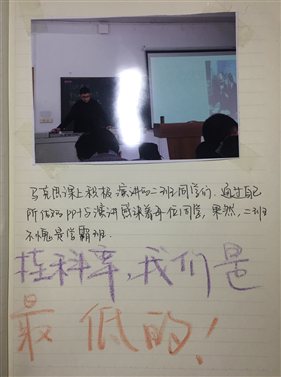 马克思课上积极演讲的二班同学们.通过自己
所做的PPT与演讲感染着每位同学,果然,二班
不愧是学霸班.
挂科率,我们是
最低的!